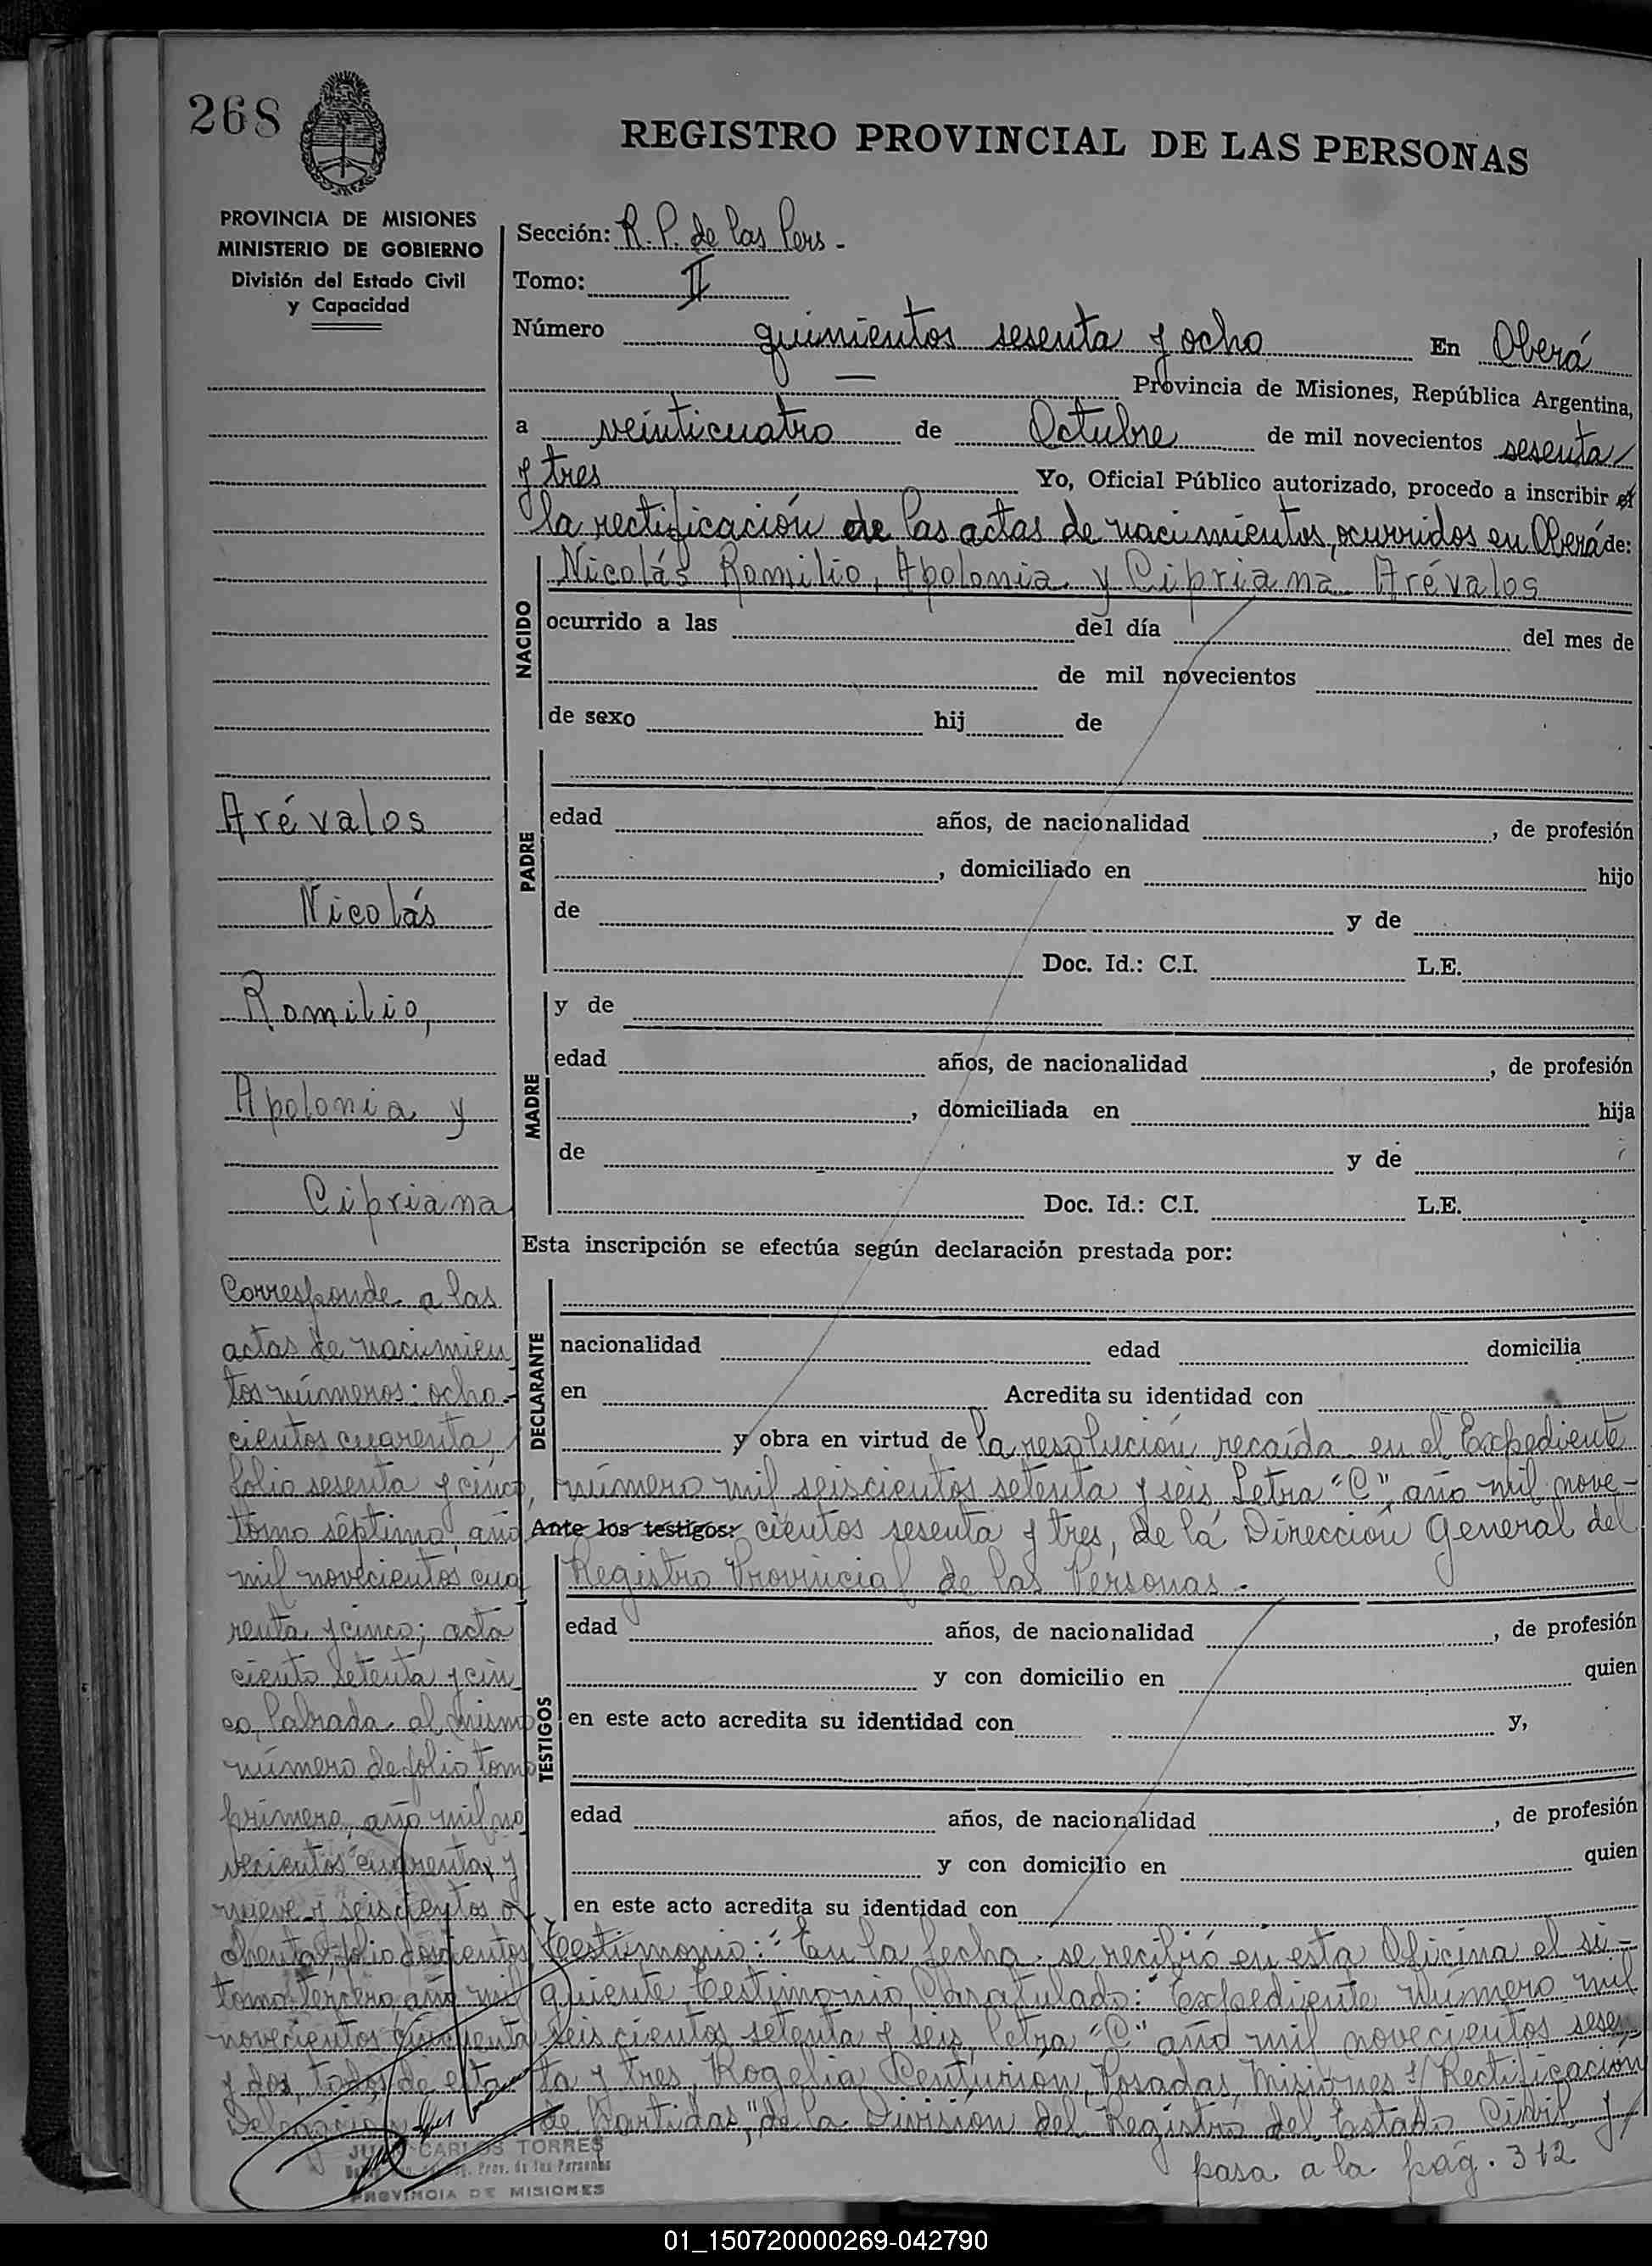 268
REGISTRO PROVINCIAL DE LAS PERSONAS
PROVINCIA DE MISIONES
MINISTERIO DE GOBIERNO
División del Estado Civil
y Capacidad
Sección: R. P. de las Pers -
Tomo: II
Número quinientos sesenta y ocho En Oberá
Provincia de Misiones, República Argentina,
a veinticuatro de Octubre de mil novecientos sesenta
y tres Yo, Oficial Público autorizado, procedo a inscribir el
la rectificación de las actas de nacimientos, ocurridos en Oberá de:
NACIDO
Nicolás Romilio, Apolonia y Cipriana Arévalos
ocurrido a las del día del mes de
de mil novecientos
de sexo hij de
PADRE
edad años, de nacionalidad , de profesión
, domiciliado en hijo
de y de
Doc. Id.: C.I. L.E.
MADRE
y de
edad años, de nacionalidad , de profesión
, domiciliada en hija
de y de
Doc. Id.: C.I. L.E.
Esta inscripción se efectúa según declaración prestada por:
DECLARANTE
nacionalidad edad domicilia
en Acredita su identidad con
y obra en virtud de la resolución recaída en el Expediente
número mil seiscientos setenta y seis Letra "C", año mil nove-
Ante los testigos: cientos sesenta y tres, de la Dirección General del
Registro Provincial de las Personas.-
TESTIGOS
edad años, de nacionalidad , de profesión
y con domicilio en quien
en este acto acredita su identidad con y,
edad años, de nacionalidad , de profesión
y con domicilio en quien
en este acto acredita su identidad con
Testimonio: "En la fecha se recibió en esta Oficina el si-
guiente testimonio, Caratulado: "Expediente Número mil
seiscientos setenta y seis, letra "C" año mil novecientos sesen
ta y tres, Rogelia Centurión, Posadas, Misiones s/ Rectificación
de Partidas," de la División del Registro del Estado Civil y/
pasa a la pág. 312
Arévalos
Nicolás
Romilio,
Apolonia y
Cipriana
Corresponde a las
actas de nacimien
tos números: ocho-
cientos cuarenta,
folio sesenta y cinco,
tomo séptimo, año
mil novecientos cua
renta y cinco; acta
ciento setenta y cin
co, labrada al mismo
número de folio tomo
primero, año mil no
vecientos cuarenta y
nueve y seiscientos o
chenta, folio doscientos
tomo tercero, año mil
novecientos cincuenta
y dos, todos de esta
Delegación
CARLOS TORRES
Prov. de las Personas
PROVINCIA DE MISIONES
01_150720000269-042790